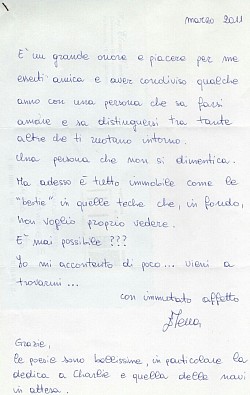 marzo 2011
E' un grande onore e piacere per me
esserti amica e aver condiviso qualche
anno con una persona che sa farsi
amare e sa distinguersi tra tante
altre che ti ruotano intorno.
Una persona che non si dimentica.
Ma adesso è tutto immobile come le
"bestie" in quelle teche che, in fondo,
non voglio proprio vedere.
E' mai possibile ???
Io mi accontento di poco... vieni a
trovarmi...
con immutato affetto
Grazie,
le poesie sono bellissime, in particolare la
dedica a Charlie e quella delle navi
in attesa.